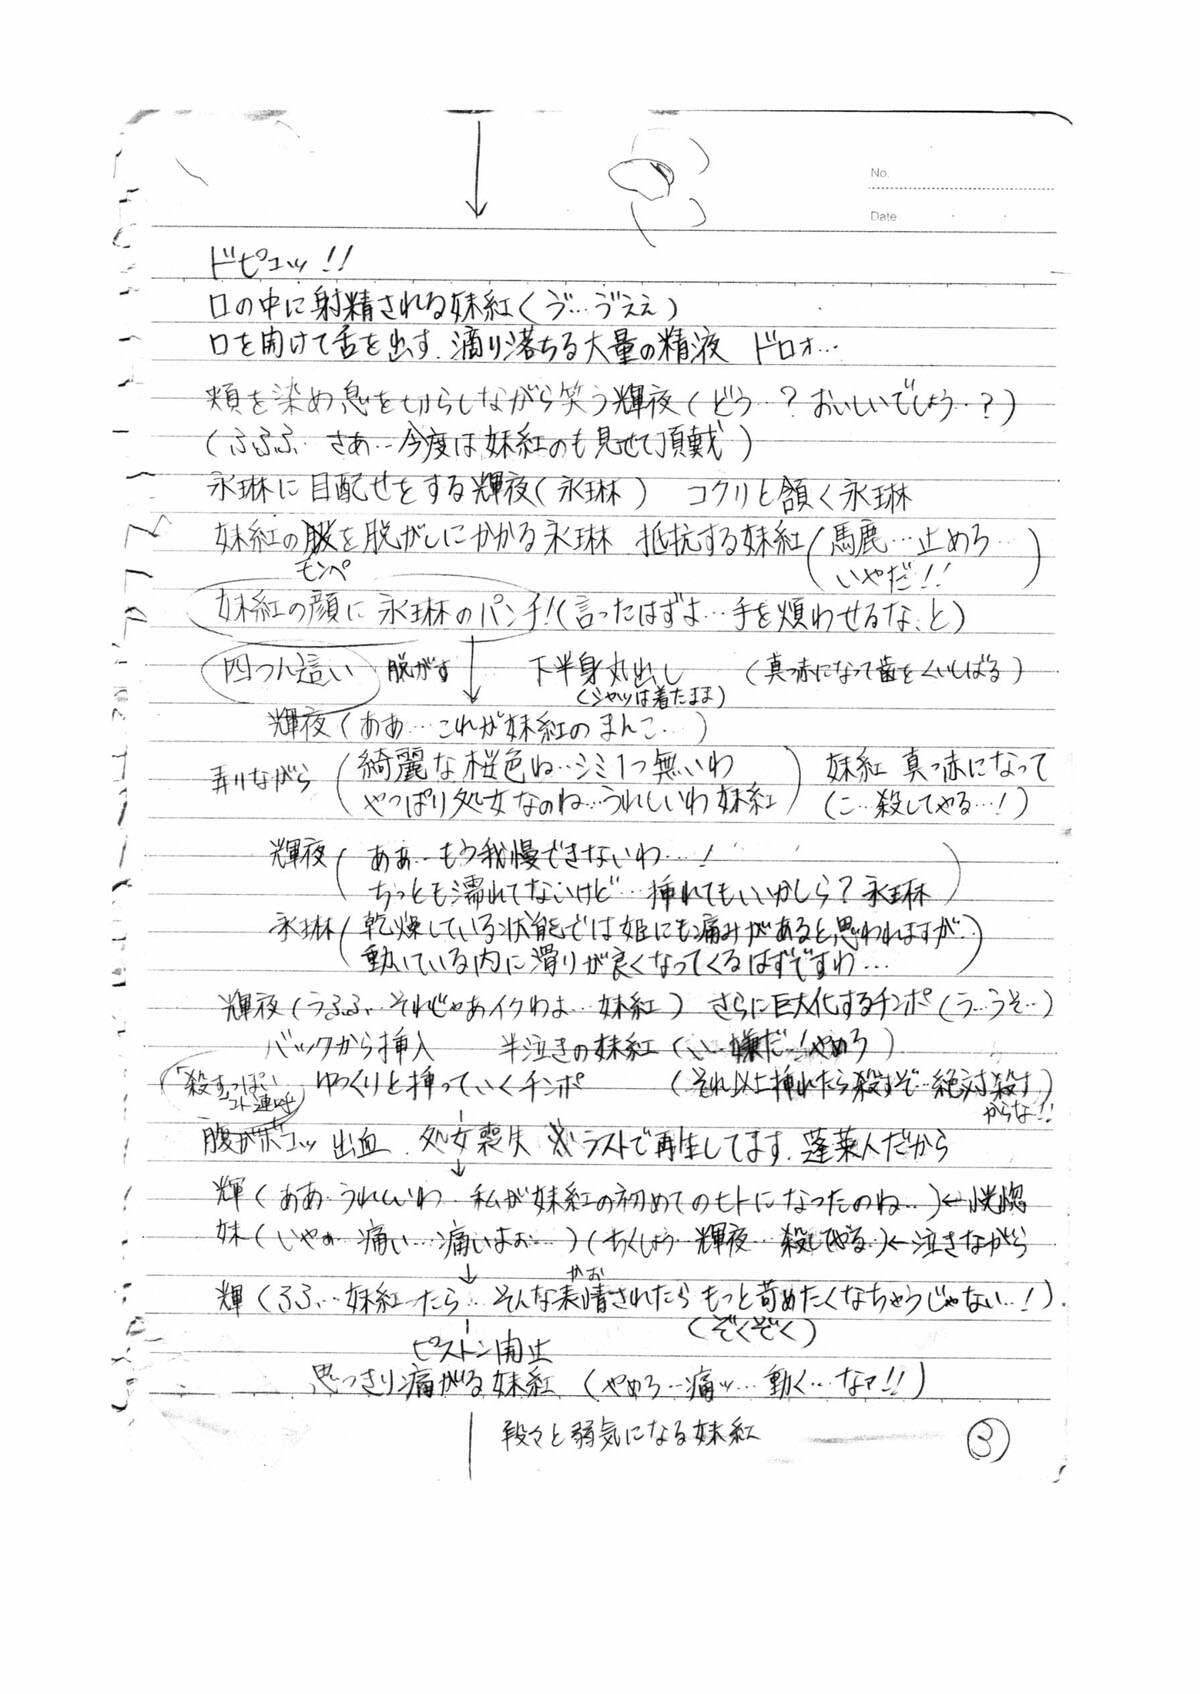 No.
Date
ドピュッ!!
口の中に射精される妹紅(ゔ…ゔえぇ)
口を開けて舌を出す.滴り落ちる大量の精液 ドロォ…
頬を染め息を切らしながら笑う輝夜(どう…?おいしいでしょう…?)
(ふふふ…さあ…今度は妹紅のも見せて頂戴)
永琳に目配せをする輝夜(永琳) コクリと頷く永琳
妹紅の服を脱がしにかかる永琳 抵抗する妹紅(馬鹿…止めろ…
モンペ いやだ!!)
妹紅の顔に永琳のパンチ!(言ったはずよ…手を煩わせるな、と)
四つん這い 脱がす 下半身丸出し (真っ赤になって歯をくいしばる)
(シャツは着たまま)
輝夜(ああ…これが妹紅のまんこ…)
弄りながら(綺麗な桜色ね…シミ1つ無いわ 妹紅 真っ赤になって
やっぱり処女なのね…うれしいわ妹紅) (こ…殺してやる…!)
輝夜(ああ…もう我慢できないわ…!
ちっとも濡れてないけど…挿れてもいいかしら?永琳)
永琳(乾燥している状態では姫にも痛みがあると思われますが…
動いている内に滑りが良くなってくるはずですわ…)
輝夜(うふふ…それじゃあイクわよ…妹紅) さらに巨大化するチンポ(う…うそ…)
バックから挿入 半泣きの妹紅(い…嫌だ…!やめろ)
(「殺す」っぽいコト連呼) ゆっくりと挿っていくチンポ (それ以上挿れたら殺すぞ…絶対殺す
からな!!)
腹がボコッ 出血.処女喪失 ※ラストで再生してます.蓬莱人だから
輝(ああ…うれしいわ…私が妹紅の初めてのヒトになったのね…)←恍惚
妹(いやぁ…痛い…痛いよお…)(ちくしょう…輝夜…殺してやる…)←泣きながら
かお
輝(ふふ…妹紅ったら…そんな表情されたらもっと苛めたくなちゃうじゃない…!)
(ぞくぞく)
ピストン開止
思っきり痛がる妹紅 (やめろ…痛ッ…動く…なァ!!)
段々と弱気になる妹紅
③